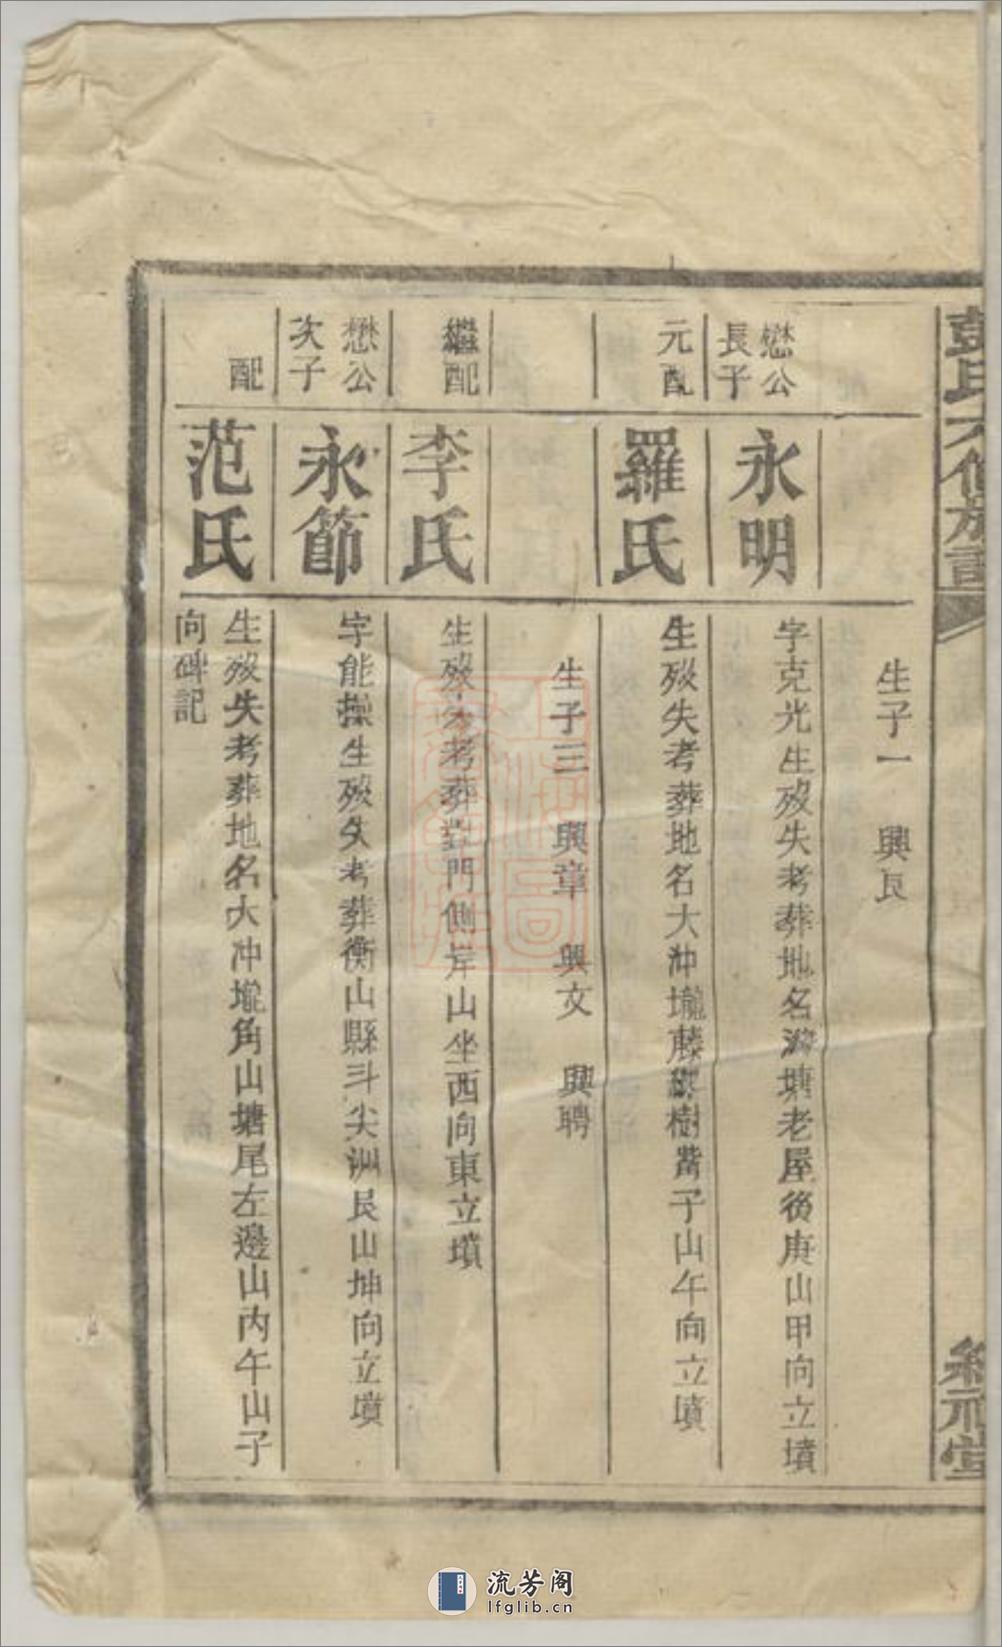 彭氏六修族譜
生子一 興良
懋公長子
永明
字克光生歿失考葬地名游塘老屋後庚山甲向立墳
元配
羅氏
生歿失考葬地名大沖壠藤樹觜子山午向立墳
生子三 興章 興文 興聘
繼配
李氏
生歿失考葬對門側岸山坐西向東立墳
懋公次子
永節
字能操生歿失考葬衡山縣斗尖洲艮山坤向立墳
配
范氏
生歿失考葬地名大冲壠角山塘尾左邊山內午山子
向碑記
流芳阁
lfglib.cn